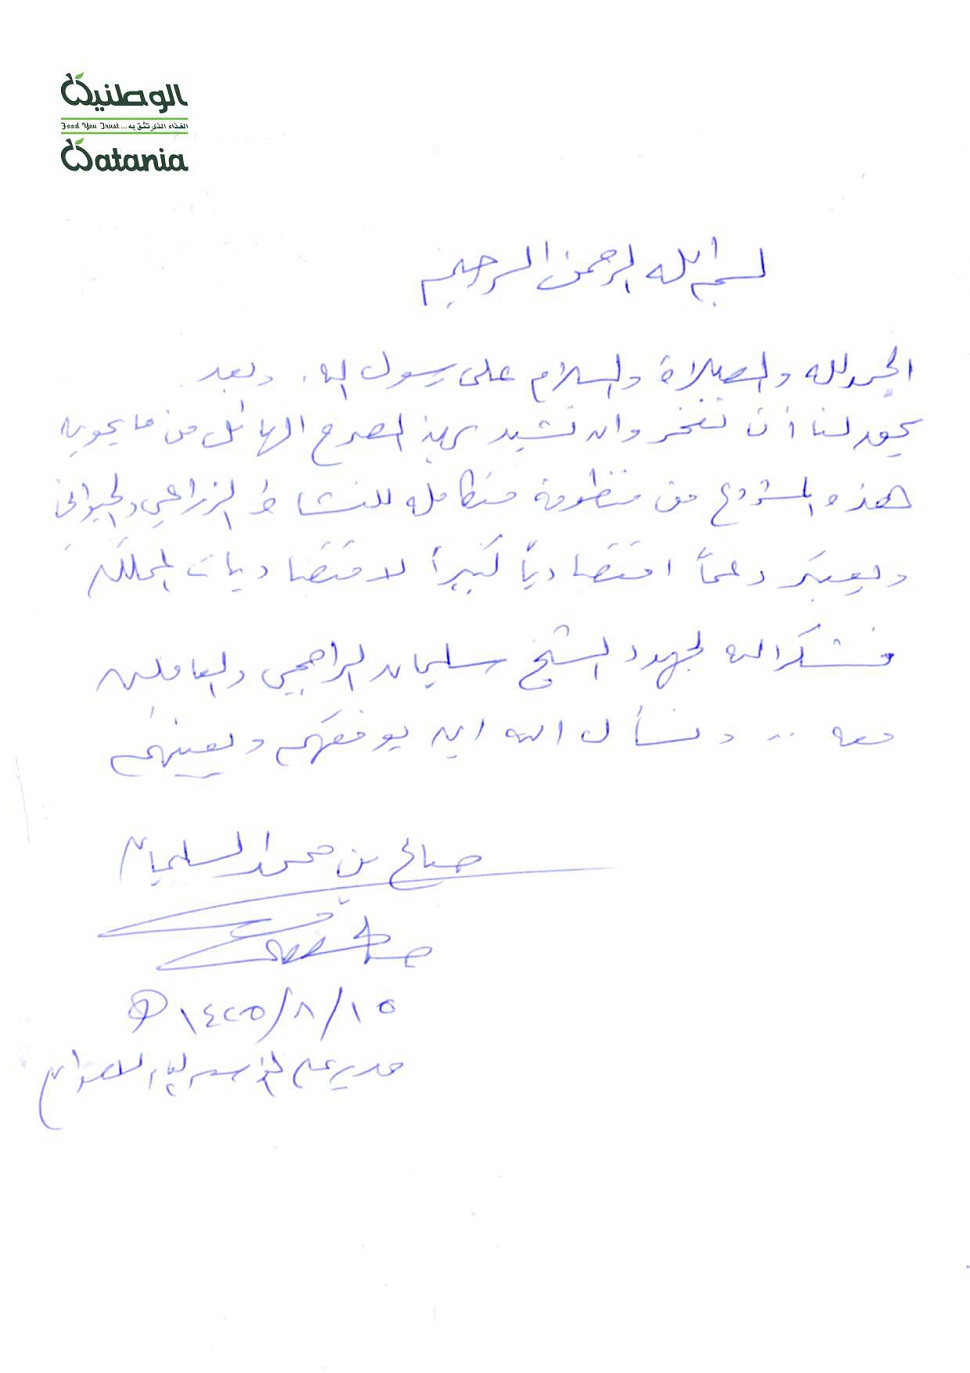 الوطنية
Food You Trust... الغذاء الذي تثق به
Watania
بسم الله الرحمن الرحيم
الحمد لله والصلاة والسلام على رسول الله. وبعد
يحق لنا أن نفخر وان نشيد بهذا الصرح الهائل من ما يحويه
هذه المشروع من منظومة متكامله للنشاط الزراعي والحيواني
ويعتبر دعماً اقتصادياً كبيراً لاقتصاديات المملكه
فشكر الله لجهود الشيخ سليمان الراجحي والعاملين
معه .. ونسأل الله ان يوفقهم ويعينهم
صالح بن محمد السليمان
١٤٢٥/٨/١٥ هـ
مدير عام